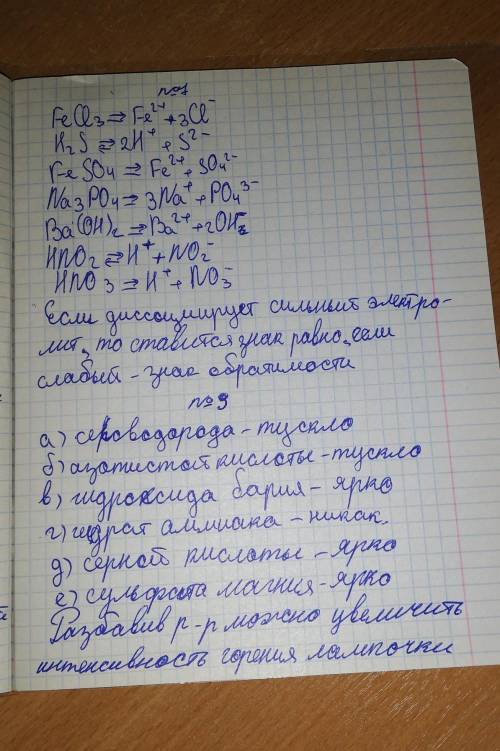 №1
FeCl₃ ⇒ Fe²⁺ + 3Cl⁻
H₂S ⇄ 2H⁺ + S²⁻
FeSO₄ ⇒ Fe²⁺ + SO₄²⁻
Na₃PO₄ ⇒ 3Na⁺ + PO₄³⁻
Ba(OH)₂ ⇒ Ba²⁺ + 2OH⁻
HNO₂ ⇄ H⁺ + NO₂⁻
HNO₃ ⇒ H⁺ + NO₃⁻
Если диссоциирует сильный электро-
лит, то ставится знак равно, если
слабый - знак обратимости
№9
а) сероводорода - тускло
б) азотистой кислоты - тускло
в) гидроксида бария - ярко
г) гидрат аммиака - никак.
д) серной кислоты - ярко
е) сульфата магния - ярко
Разбавив р-р можно увеличить
интенсивность горения лампочки